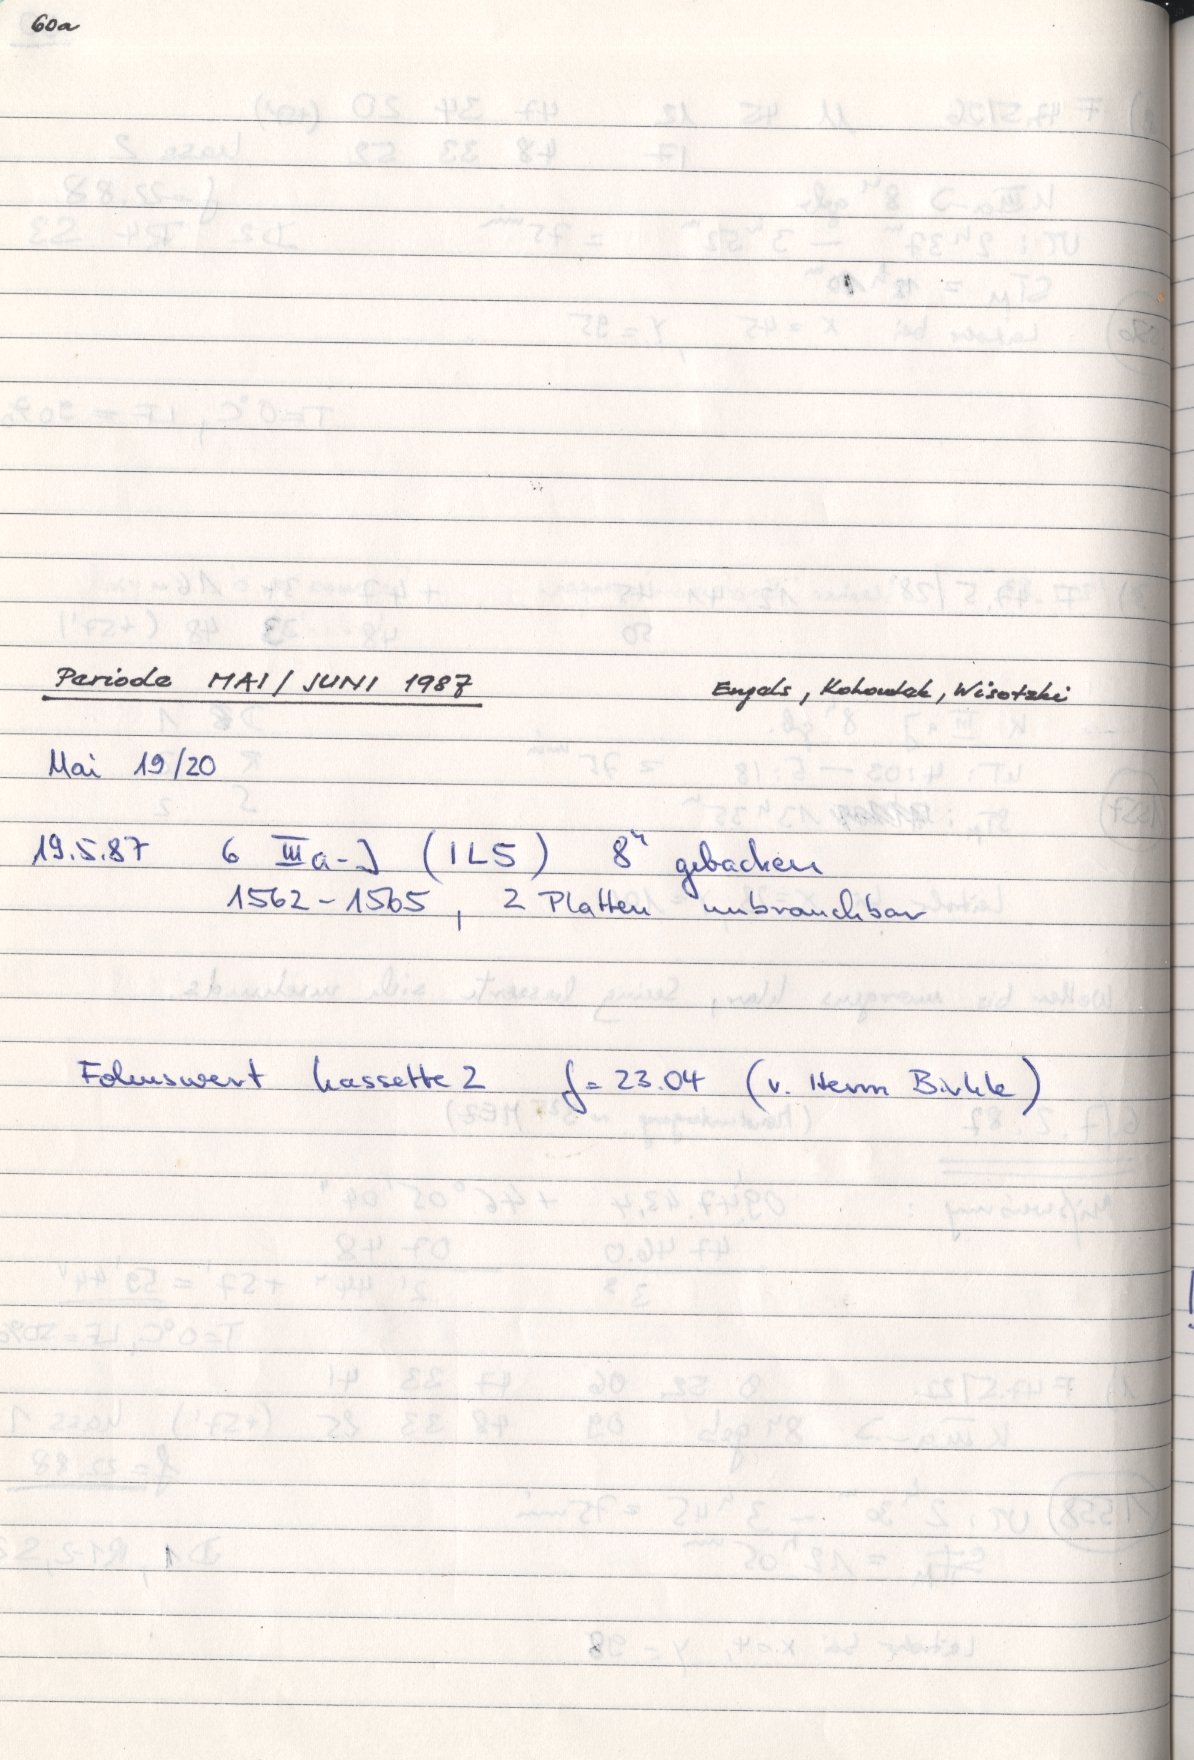 60a
Periode MAI/JUNI 1987 Engels, Kohoutek, Wisotzki
Mai 19/20
19.5.87 6 IIIa-J (IL5) 8ʰ gebacken
1562-1565, 2 Platten unbrauchbar
Fokuswert Kassette 2 f = 23.04 (v. Herrn Birkle)